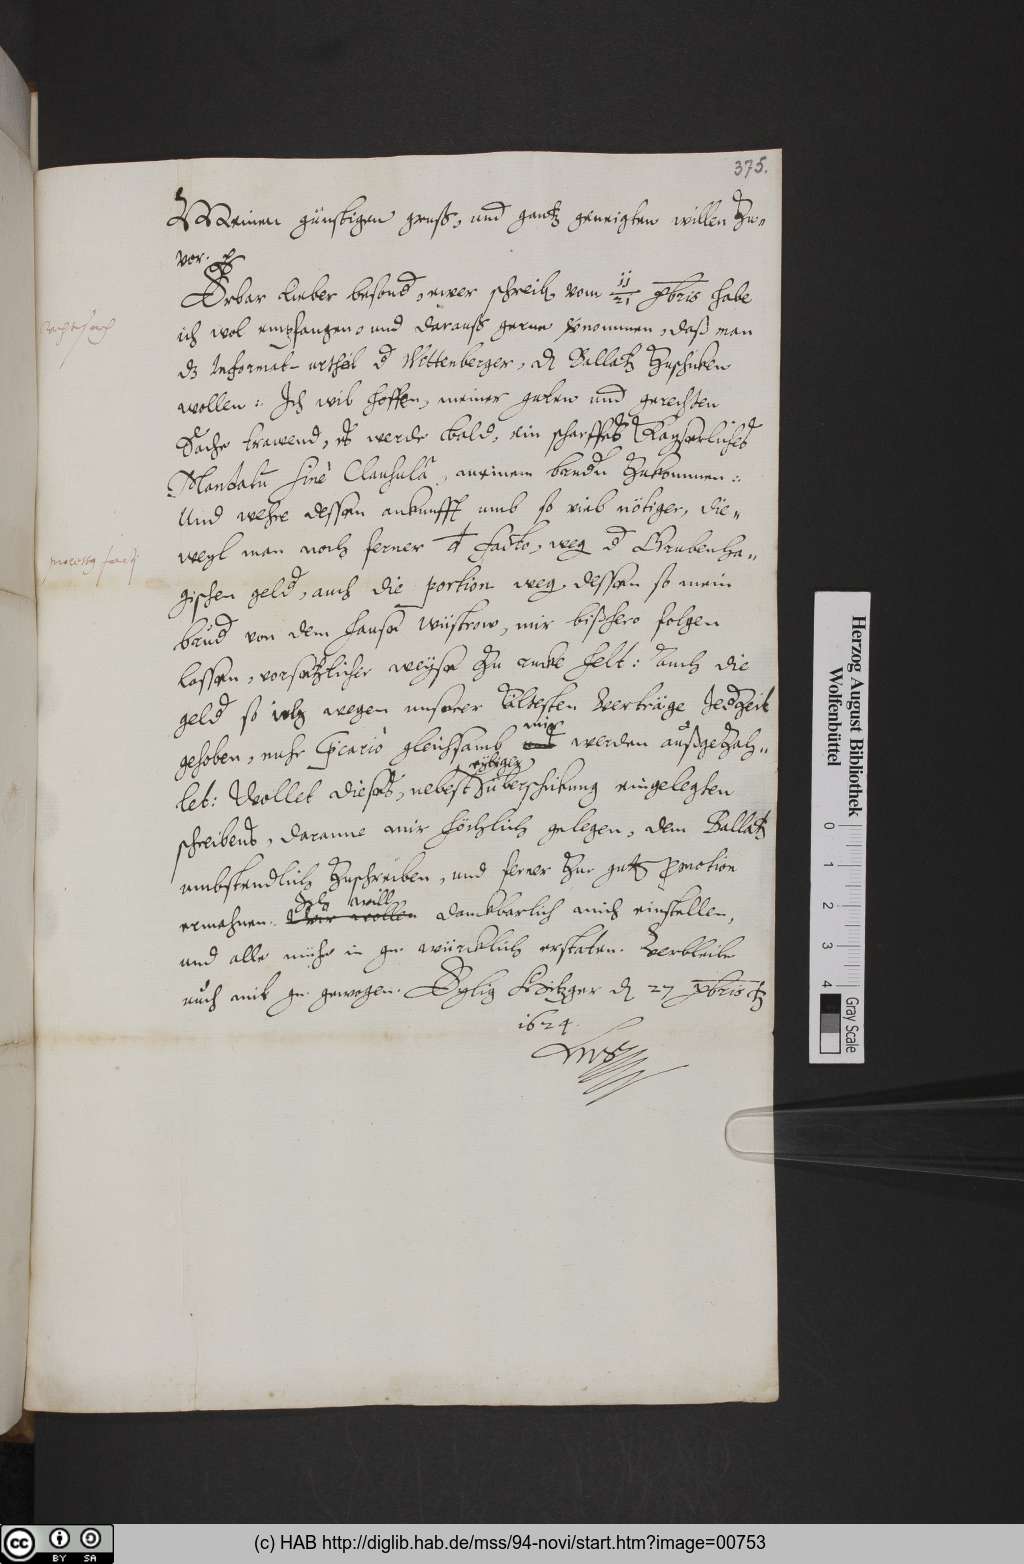 375.
Meinen günstigen gruß, und gantz geneigten willen Zu-
vor.
Erbar lieber besond, ewer schreib. vom 11/21 xbris habe
ich wol empfangen, und darauß gerne vernommen, daß man
dz Informat-urthel d Wittenberger, Ballatz Zuschicken
wollen: Ich wil hoffen, meiner guten und gerechten
Sache trawend, es werde bald, ein scharffes Kayserliches
Mandatu sine Clausula, an meinem brudn Zukommen:
Und wehre dessen ankunfft umb so viel nötiger, die-
weyl man noch ferner facto, weg d Grubenha-
gischen geld, auch die portion weg. dessen so mein
brud von dem hause Wüstrow, mir bißhero folgen
lassen, vorsetzlicher weyse Zu rucke helt: Auch die
geld so ich wegen unserer Eltesten Verträge Jedzeit
gehoben, nuhr gleichsamb
mir
werden außgezahl-
let: Wollet dieses, nebest überschickung eingelegten
schreibens, daranne mir höchlich gelegen, dem Ballatz
umbstendlich Zuschreiben, und ferner Zur gutt promotion
ermahnen.
Ich will
Wir wollen danckbarlich mich einstellen,
und alle mühe in gn. würcklich erstaten. Verbleibe
euch mit gn. gewogen. Eylig Hitzger d 27 xbris
1624.
Herzog August Bibliothek
Wolfenbüttel
0 1 2 3 4
Gray Scale
cc BY SA
(c) HAB http://diglib.hab.de/mss/94-novi/start.htm?image=00753